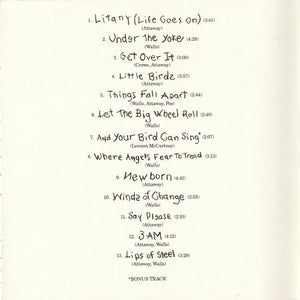 1. Litany (Life Goes On) (3:41)
(Attaway)
2. Under the Yoke (4:29)
(Walls)
3. Get Over It (3:00)
(Crowe, Attaway)
4. Little Birds (2:57)
(Attaway)
5. Things Fall Apart (2:44)
(Walls, Attaway, Poe)
6. Let The Big Wheel Roll (2:40)
(Walls)
7. And Your Bird Can Sing* (2:07)
(Lennon McCartney)
8. Where Angels Fear To Tread (3:12)
(Attaway, Walls)
9. Newborn (4:42)
(Attaway)
10. Winds of Change (3:55)
(Walls)
11. Say Please (2:10)
(Attaway)
12. 3 AM (4:12)
(Attaway, Walls)
13. Lips of Steel (3:28)
(Attaway, Walls)
*BONUS TRACK